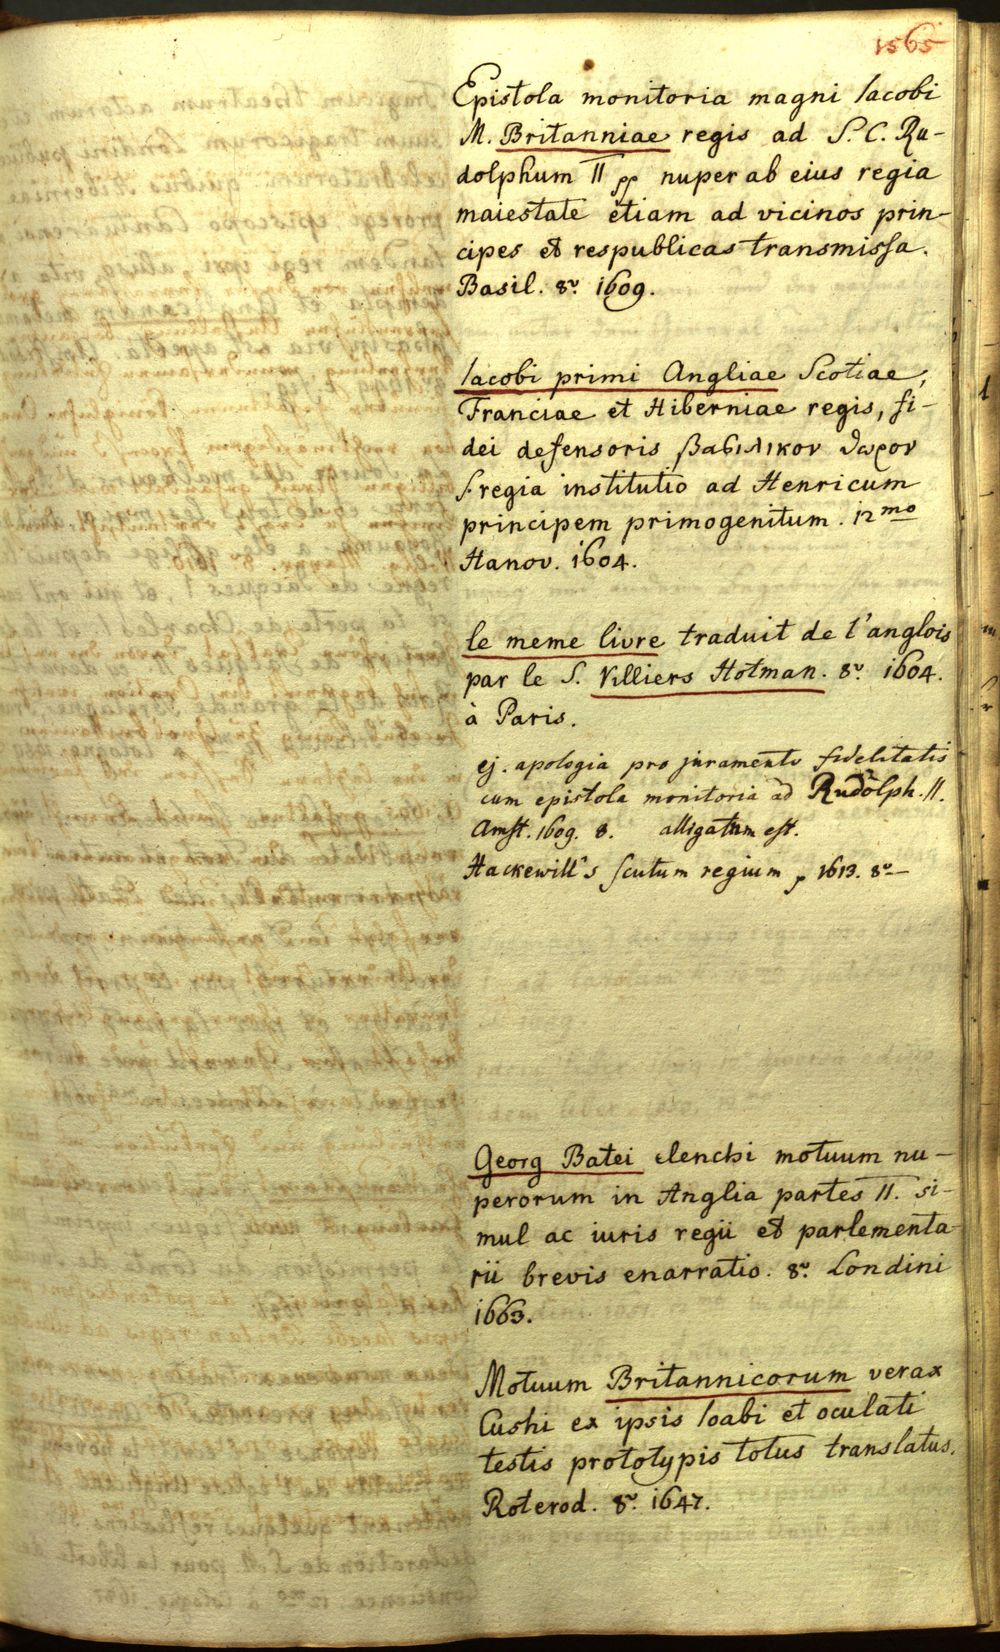 1565
Epistola monitoria magni Iacobi
M. Britanniae regis ad S. C. Ru-
dolphum II pp nuper ab eius regia
maiestate etiam ad vicinos prin-
cipes et respublicas transmissa.
Basil. 8º. 1609.
Iacobi primi Angliae Scotiae,
Franciae et Hiberniae regis, fi-
dei defensoris βασιλικον δωρον
s. regia institutio ad Henricum
principem primogenitum. 12mo
Hanov. 1604.
le meme livre traduit de l'anglois
par le S. Villiers Hotman. 8º. 1604.
à Paris.
ej. apologia pro juramento fidelitatis
cum epistola monitoria ad Rudolph. II.
Amst. 1609. 8. alligatum est.
Hackewill's scutum regium, 1613. 8º
Georg Batei elenchi motuum nu-
perorum in Anglia partes II. si-
mul ac iuris regii et parlementa-
rii brevis enarratio. 8º. Londini
1663.
Motuum Britannicorum verax
Cushi ex ipsis Ioabi et oculati
testis prototypis totus translatus.
Roterod. 8º. 1647.